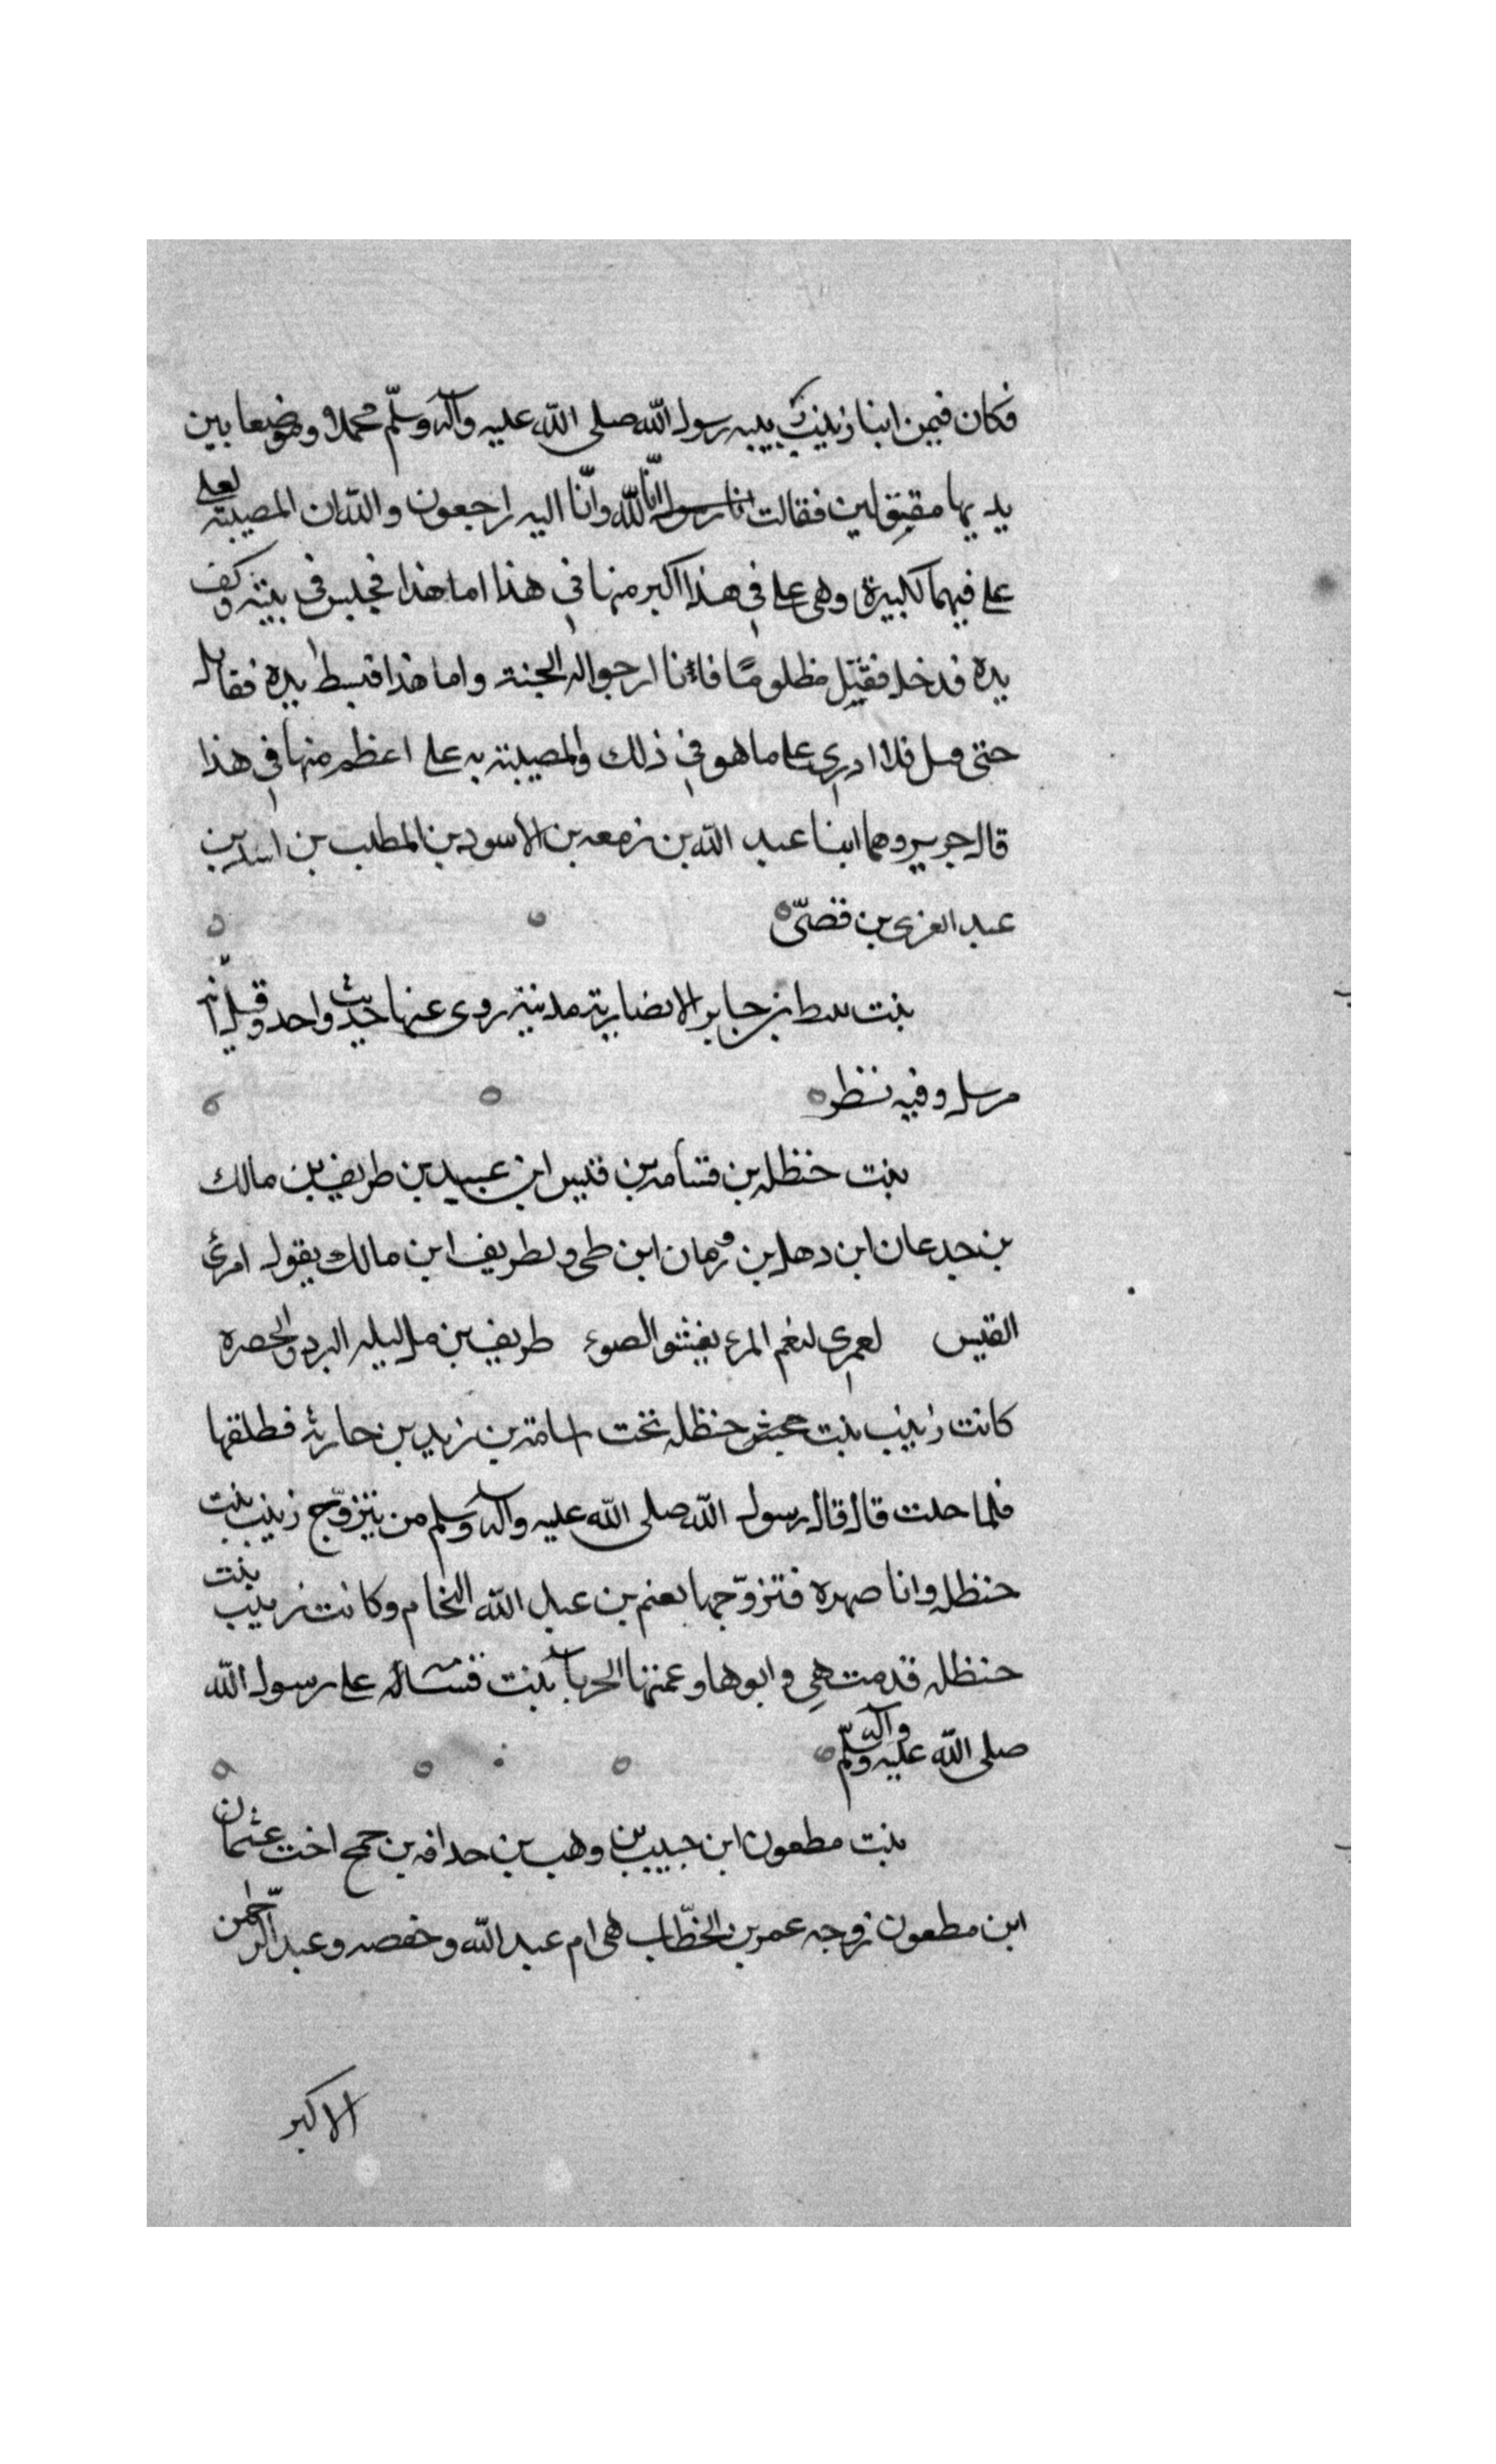 فكان فيمن ابنا زينب ربيبه رسول الله صلى الله عليه وآله وسلّم فحملا ووضعا بين
يديها مقتولين فقالت انا لله وانّا اليه راجعون والله ان المصيبة لعلى
على فيهما لكبيرة وهى على فى هذا اكبر منها فى هذا اما هذا فجلس فى بيته وكف
يده فدخل فقتل مظلومًا فانا ارجوا له الجنة واما هذا فبسط يده فقاتل
حتى قتل فلا ادرى على ما هو فى ذلك والمصيبة به على اعظم منها فى هذا
قال جرير وهما ابنا عبد الله بن زمعه بن الاسود بن المطلب بن اسد بن
عبد العزى بن قصىّ
بنت نبيط بن جابر الانصارية مدنية روى عنها حديث واحد وقيل انّه
مرسل وفيه نظر
بنت حنظله بن قسامه بن قيس ابن عبيد بن طريف بن مالك
بن جدعان ابن دهل بن رومان ابن طى ولطريف ابن مالك يقول امرئ
القيس لعمرى لنعم المرء يغشو الضوء طريف بن مل ليله البرد والخصره
كانت زينب بنت حنظله تحت اسامة بن زيد بن حارثه فطلقها
فلما حلت قال قال رسول الله صلى الله عليه وآله وسلم من يتزوّج زينب بنت
حنظله وانا صهره فتزوّجها نعيم بن عبد الله النحام وكانت زينب بنت
حنظله قدمت هى وابوها وعمتها الحربا بنت قسامه على رسول الله
صلى الله عليه وآله وسلّم
بنت مطعون ابن حبيب بن وهب بن حدافه بن جمح اخت عثمان
ابن مطعون زوجه عمر بن الخطّاب هى ام عبد الله وحفصه وعبد الرّحمن
الاكبر